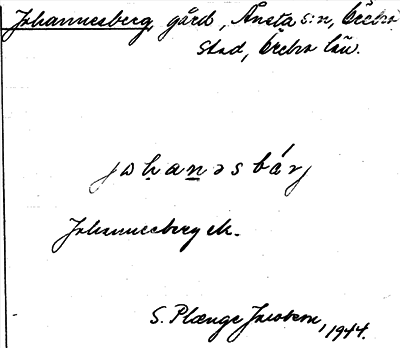 Johannesberg, gård, Ånsta s:n, Örebro
stad, Örebro län.
johanəsbárj
Johannesberg ek.
S. Plænge Jacobson, 1944.